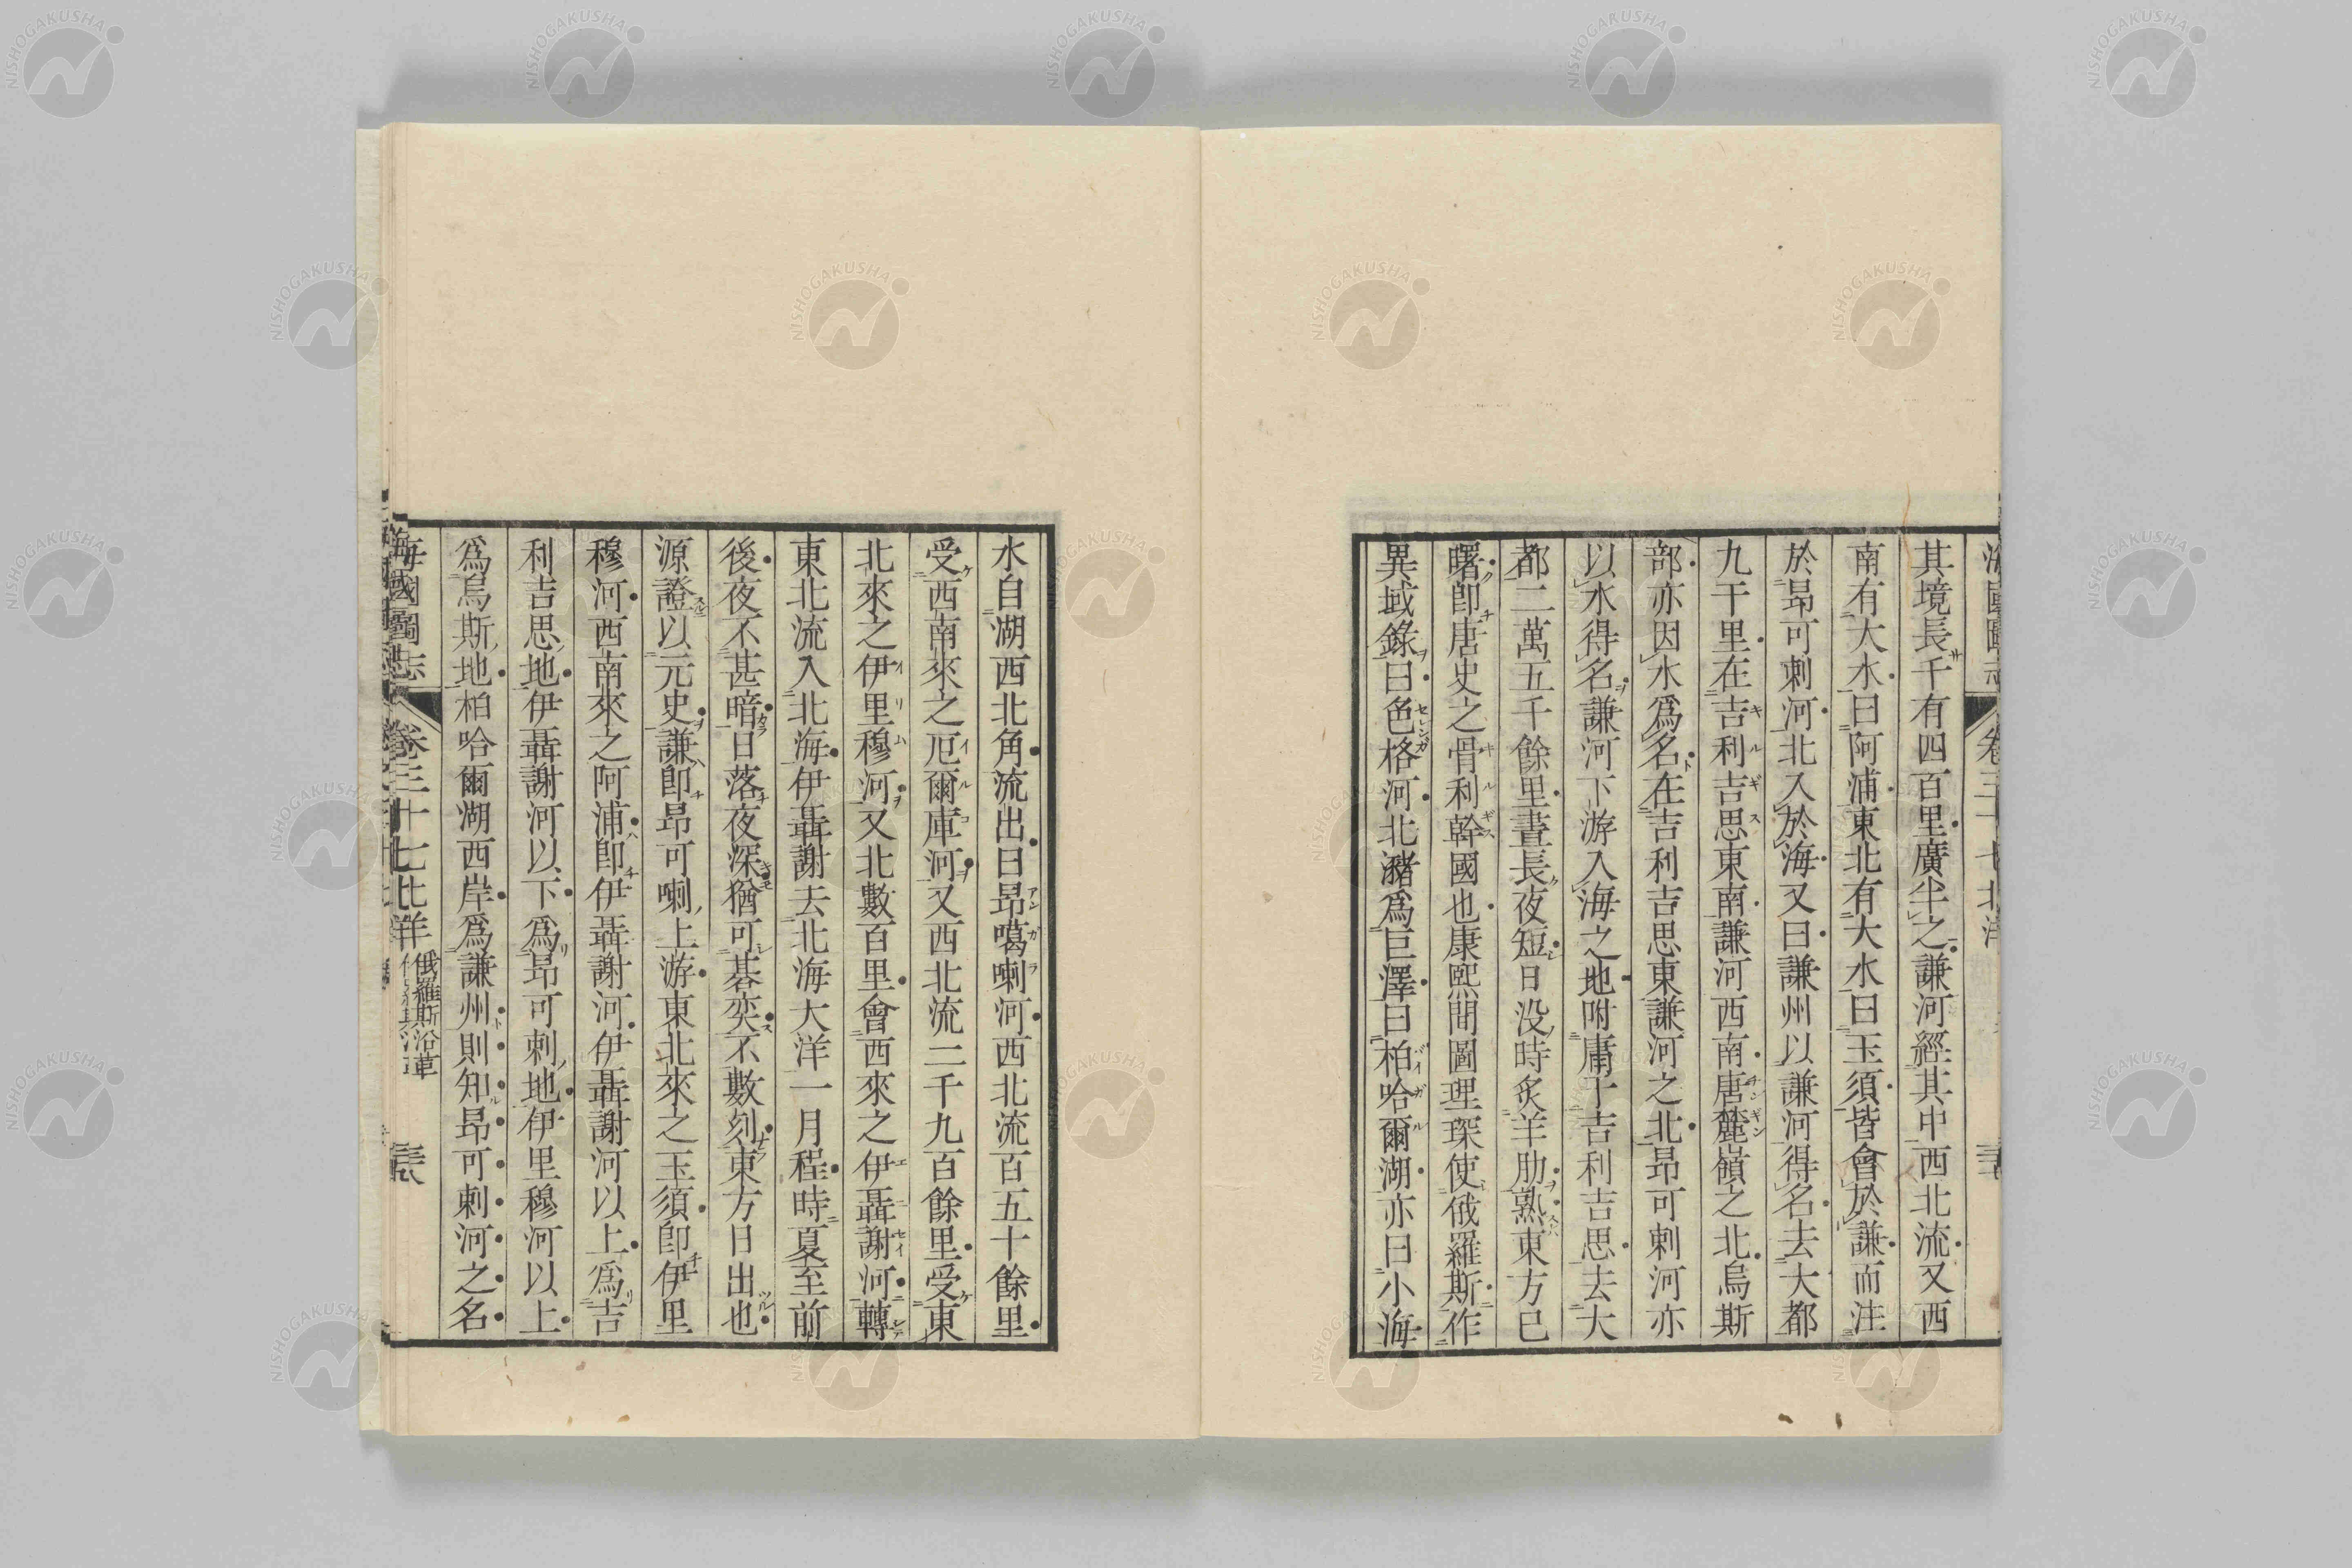 其境長千有四百里廣半之謙河經其中西北流又西
南有大水曰阿浦東北有大水曰玉須皆會於謙而注
於昻可剌河北入於海又曰謙州以謙河得名去大都
九千里在吉利吉思東南謙河西南唐麓嶺之北烏斯
部亦因水爲名在吉利吉思東謙河之北昻可剌河亦
以水得名謙河下游入海之地附庸于吉利吉思去大
都二萬五千餘里晝長夜短日没時炙羊肋熟東方已
曙卽唐史之骨利幹國也康熙間圖理琛使俄羅斯作
異域錄曰色格河北豬爲巨澤曰柏哈爾湖亦曰小海
水自湖西北角流出曰昻噶喇河西北流百五十餘里
受西南來之厄爾庫河又西北流二千九百餘里受東
北來之伊里穆河又北數百里會西來之伊聶謝河轉
東北流入北海伊聶謝去北海大洋一月程時夏至前
後夜不甚暗日落夜深猶可棊奕不數刻東方日出也
源證以元史謙卽昻可喇上游東北來之玉須卽伊里
穆河西南來之阿浦卽伊聶謝河伊聶謝河以上爲吉
利吉思地伊聶謝河以下爲昻可剌地伊里穆河以上
爲烏斯地柏哈爾湖西岸爲謙州則知昻可剌河之名
海國圖志 卷三十七北洋 俄羅斯沿革
NISHOGAKUSHA